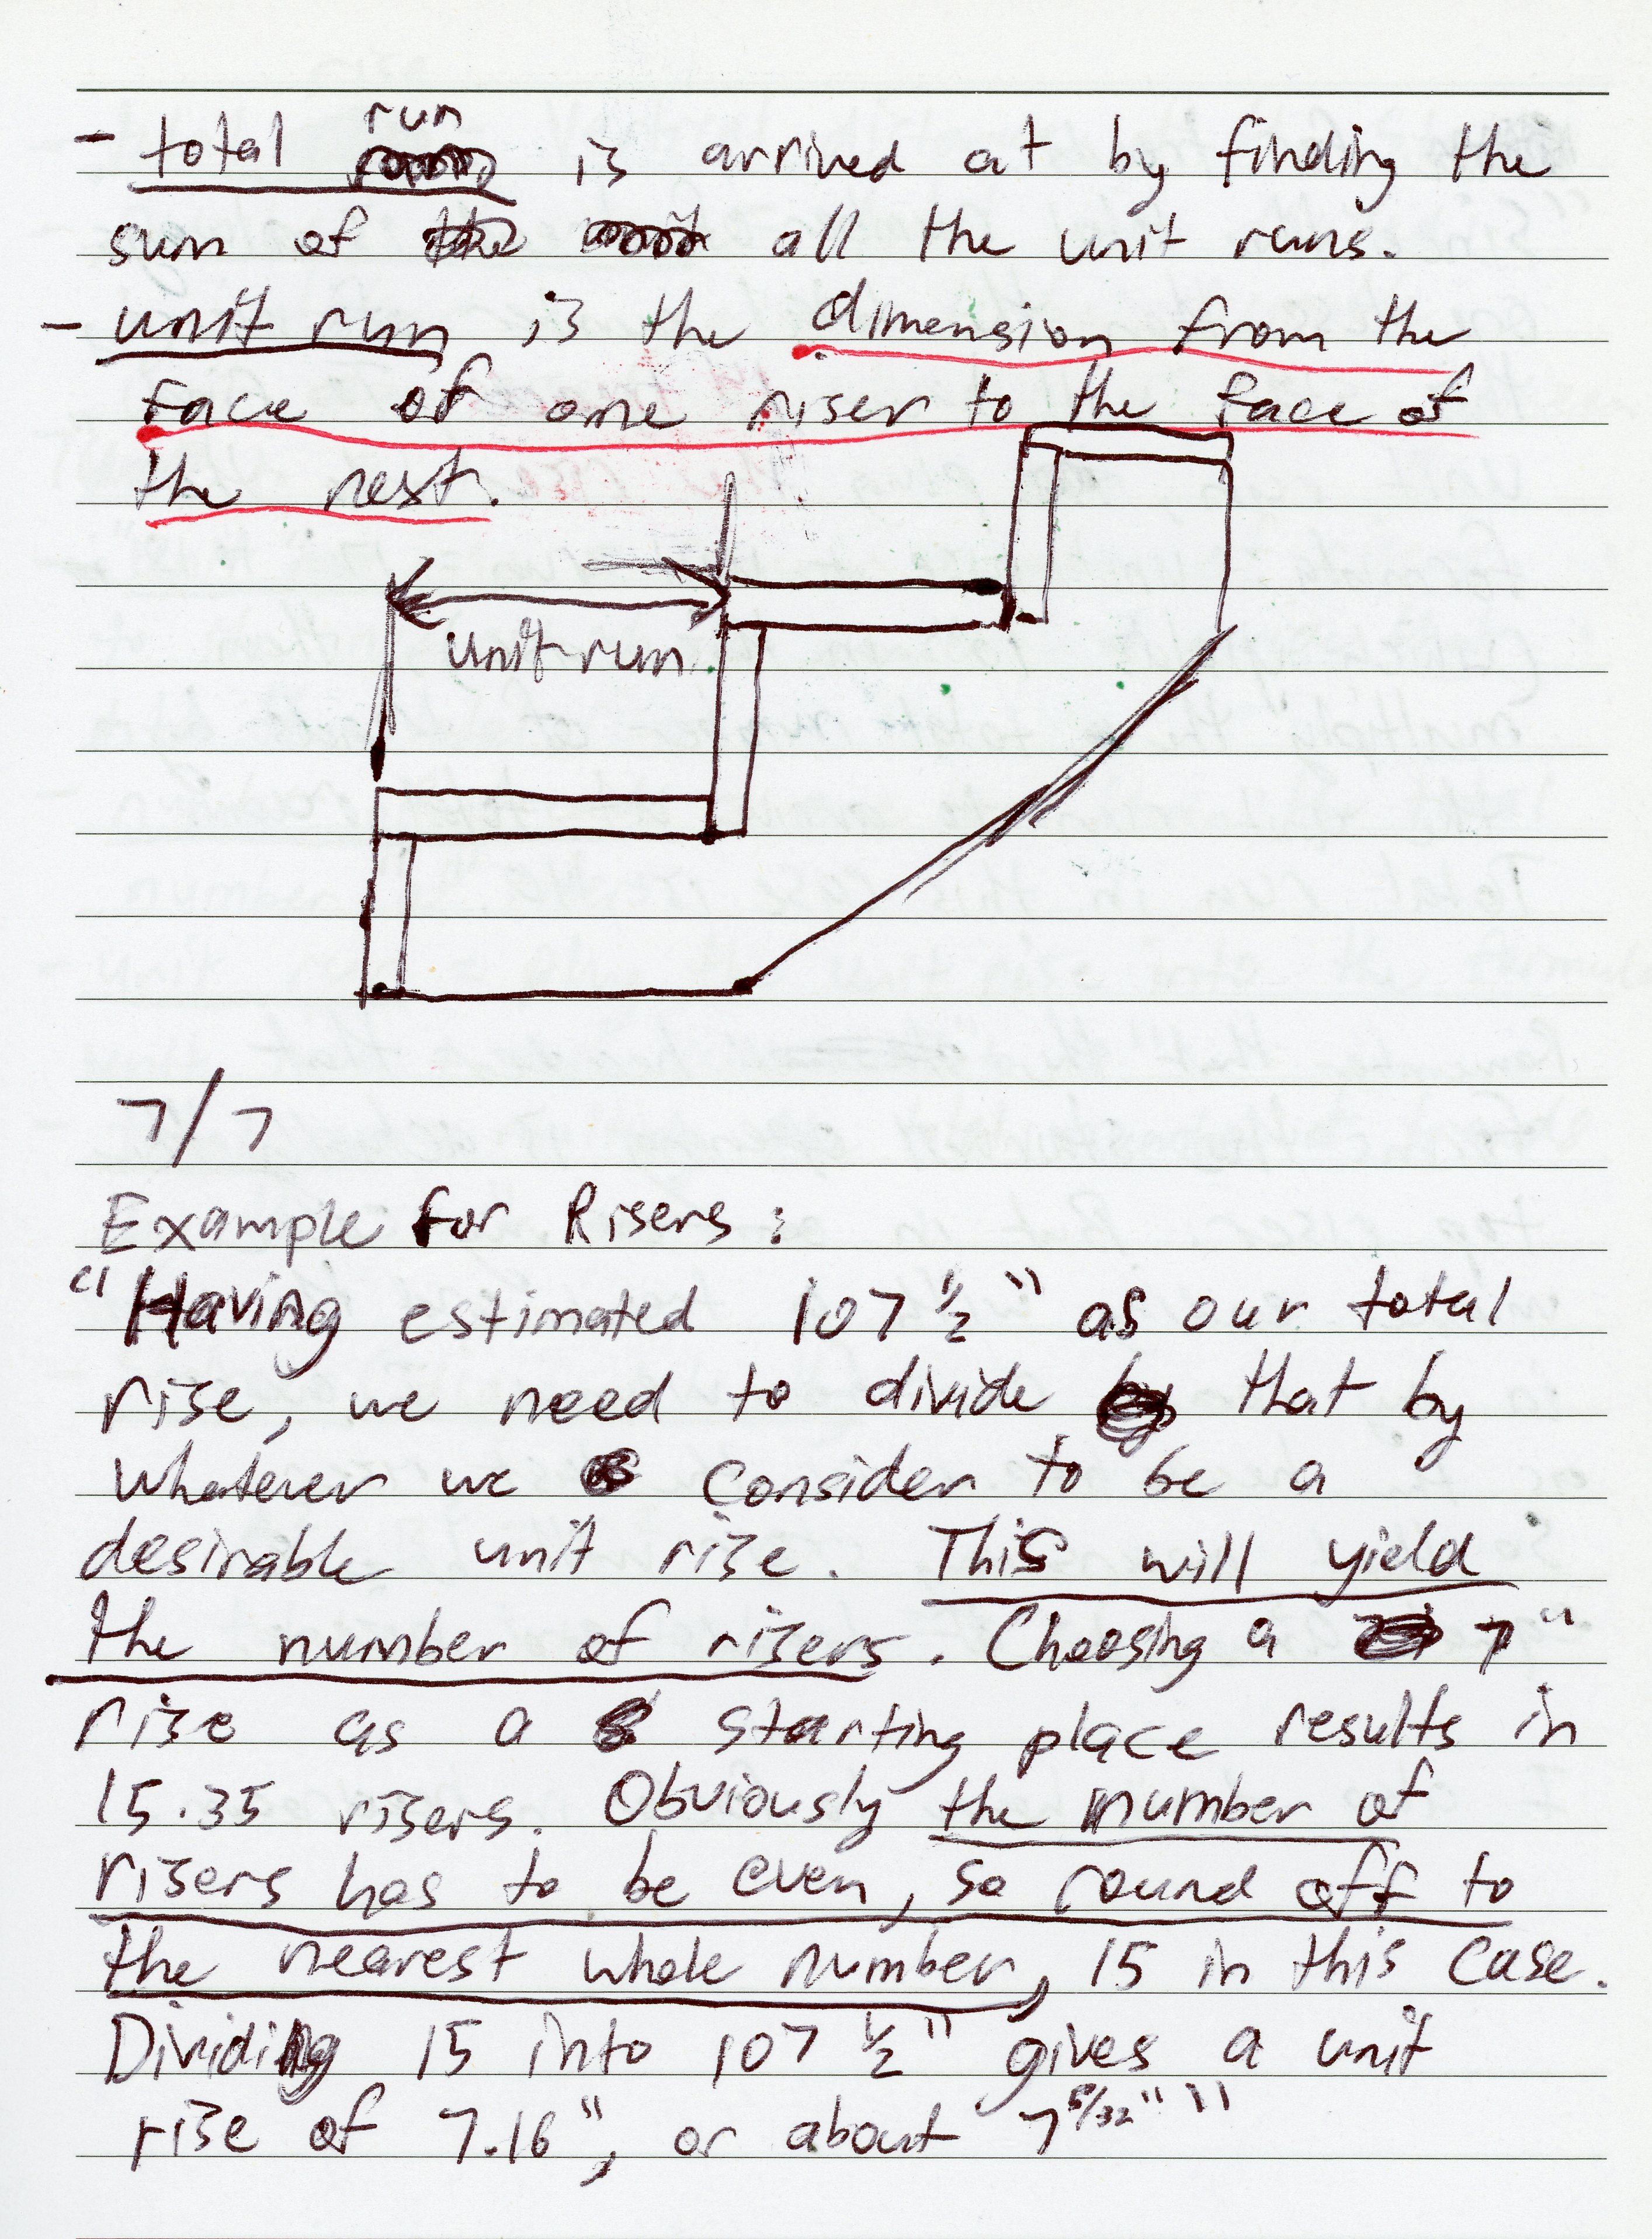 run
- total is arrived at by finding the
sum of all the unit runs.
- unit run is the dimension from the
face of one riser to the face of
the next.
unit run
7/7
Example for Risers:
"Having estimated 107 1/2" as our total
rise, we need to divide that by
whatever we consider to be a
desirable unit rise. This will yield
the number of risers. Choosing a 7"
rise as a starting place results in
15.35 risers. Obviously the number of
risers has to be even, so round off to
the nearest whole number, 15 in this case.
Dividing 15 into 107 1/2" gives a unit
rise of 7.16", or about 7 5/32" "